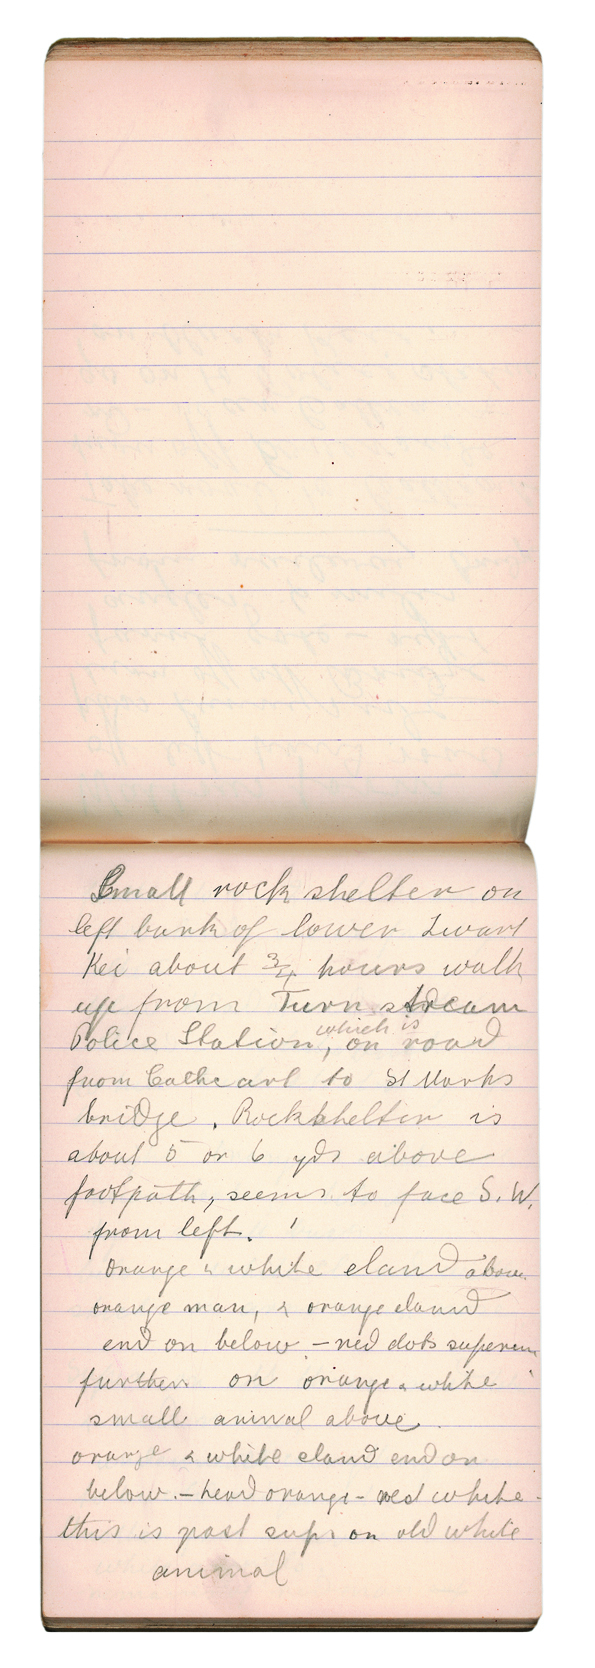 Small rock shelter on
left bank of lower Zwart
Kei about 3/4 hours walk
up from Turn stream
Police Station, which is on road
from Cathcart to St Marks
bridge. Rockshelter is
about 5 or 6 yds above
footpath, seems to face S.W.
from left.
orange & white eland above
orange man, & orange eland
end on below – red dots
further on orange & white
small animal above.
orange & white eland end on
below. – head orange – rest white –
this is past on old white
animal